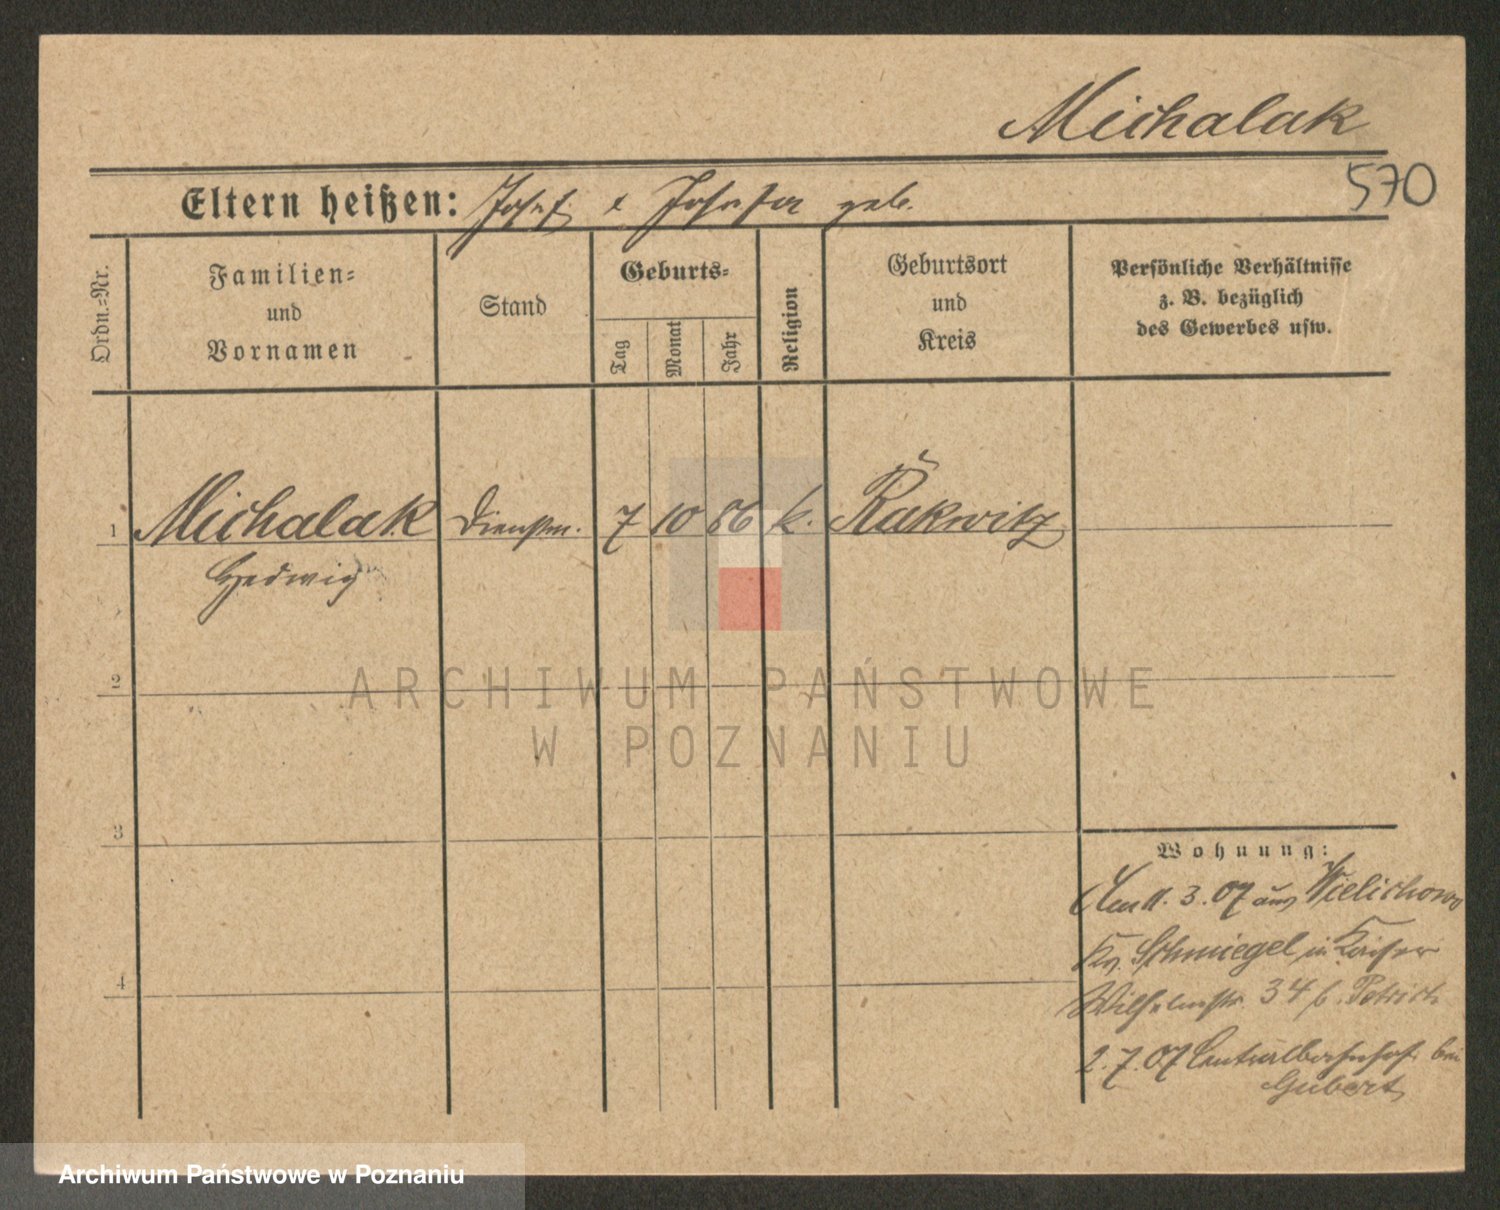 Michalak
570
Eltern heißen: Josef & Josefa geb.
Ordn.=Nr.
Familien=
und
Vornamen
Stand
Geburts=
Tag
Monat
Jahr
Religion
Geburtsort
und
Kreis
Persönliche Verhältnisse
z. B. bezüglich
des Gewerbes usw.
1 Michalak Dienstm. 7 10 86 k. Rakwitz
Hedwig
2
3
4
Wohnung:
3.07 aus Wielichowo
Kr. Schmiegel in Kaiser
Wilhelmstr. 34 b.
2.7.07 Centralbahnhof bei
Gubert
ARCHIWUM PAŃSTWOWE
W POZNANIU
Archiwum Państwowe w Poznaniu